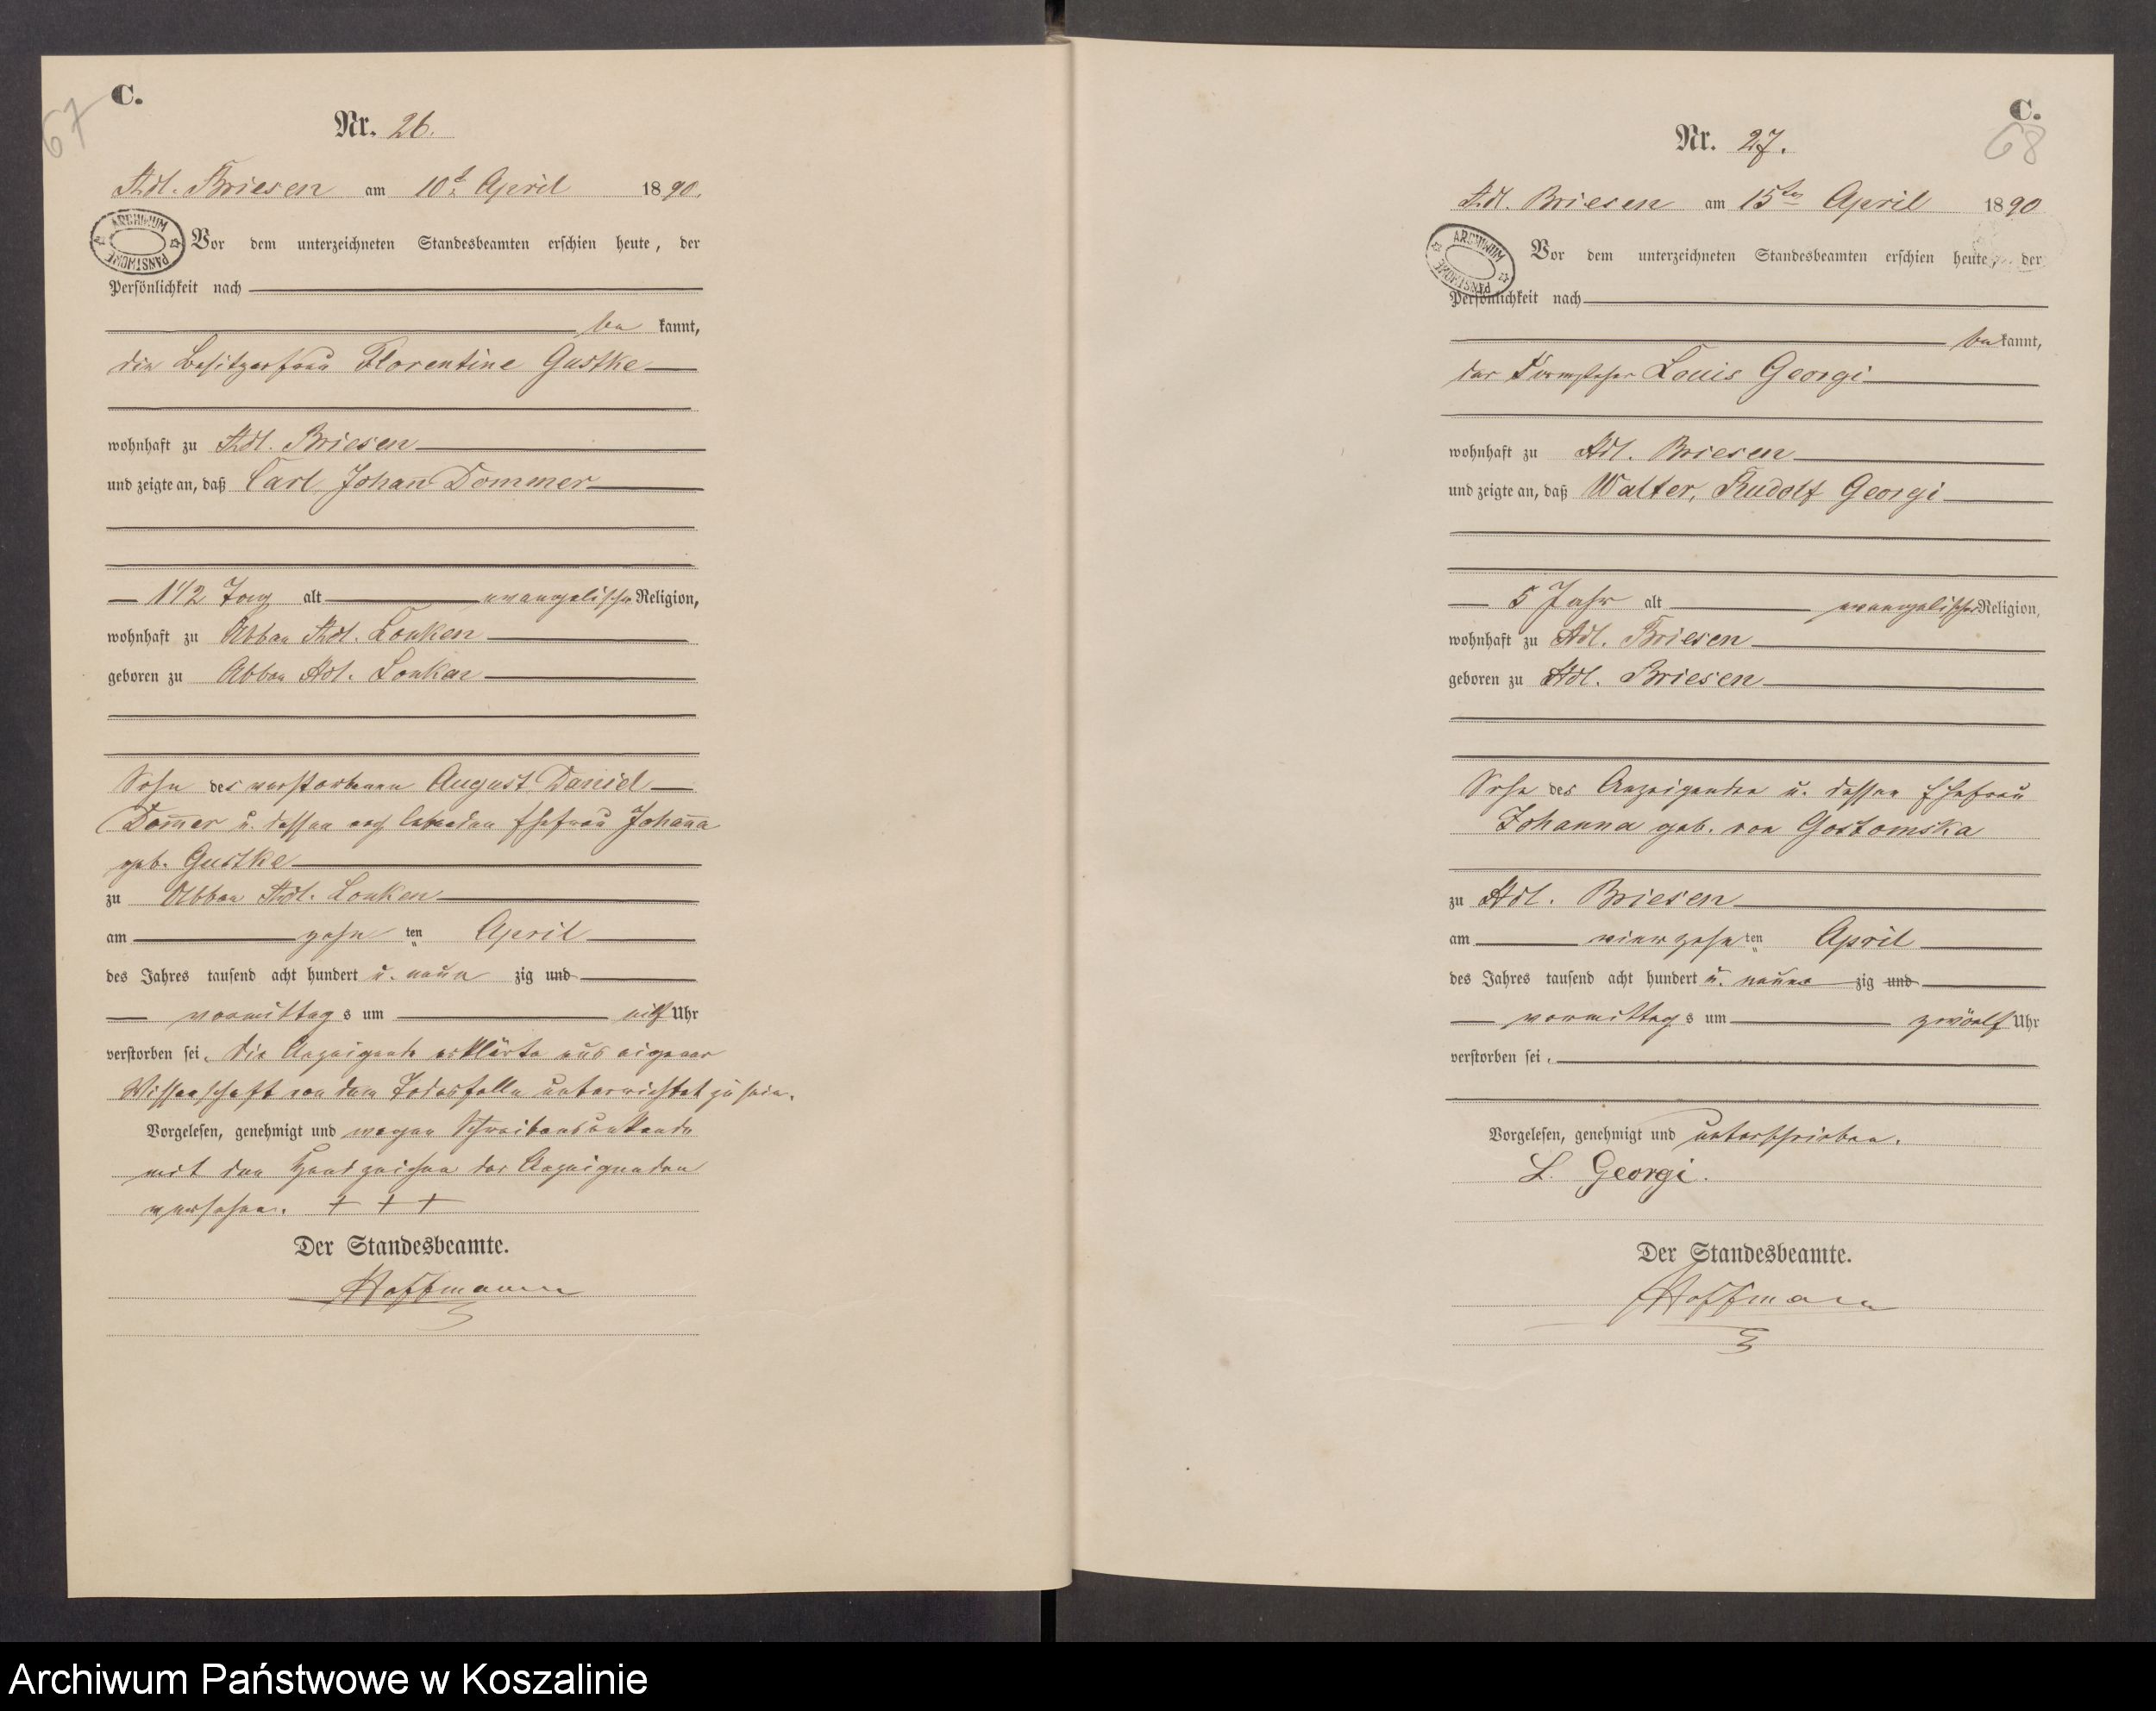 67
C.
Nr. 26.
Adl. Briesen am 10t. April 1890.
ARCHIWUM PAŃSTWOWE
Vor dem unterzeichneten Standesbeamten erschien heute, der
Persönlichkeit nach
be kannt,
die Besitzerfrau Florentine Gustke
wohnhaft zu Adl. Briesen
und zeigte an, daß Carl Johan Dommer
1 1/2 Tag alt evangelischer Religion,
wohnhaft zu Abbau Adl. Lonken
geboren zu Abbau Adl. Lonken
Sohn des verstorbenen August Daniel
Dom̅er u. dessen noch lebenden Ehefrau Johan̅a
geb. Gustke
zu Abbau Adl. Lonken
am zehn ten April
des Jahres tausend acht hundert u. neun zig und
vormittag s um elf Uhr
verstorben sei. Die Anzeigende erklärte aus eigener
Wissenschaft von dem Todesfalle unterrichtet zu sein.
Vorgelesen, genehmigt und wegen Schreibensunkunde
mit den Handzeichen der Anzeigenden
versehen. + + +
Der Standesbeamte.
Hoffmann
C.
68
Nr. 27.
Adl. Briesen am 15ten April 1890
ARCHIWUM PAŃSTWOWE
Vor dem unterzeichneten Standesbeamten erschien heute, der
Persönlichkeit nach
be kannt,
der Louis Georgi
wohnhaft zu Adl. Briesen
und zeigte an, daß Walter, Rudolf Georgi
5 Jahr alt evangelischer Religion,
wohnhaft zu Adl. Briesen
geboren zu Adl. Briesen
Sohn des Anzeigenden u. dessen Ehefrau
Johanna geb. von Gostomska
zu Adl. Briesen
am vierzehn ten April
des Jahres tausend acht hundert u. neun zig und
vormittag s um zwöelf Uhr
verstorben sei.
Vorgelesen, genehmigt und unterschrieben.
L. Georgi.
Der Standesbeamte.
Hoffmann
Archiwum Państwowe w Koszalinie